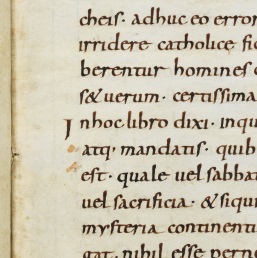 cheis· adhuc eo error
irridere catholicę fi
berentur homines
s& uerum· certissima
Inhoc libro dixi· inqu
atq; mandatis· quib
est· quale uel sabbat
uel sacrificia· & siqu
mysteria continenti
gat· nihil esse perne